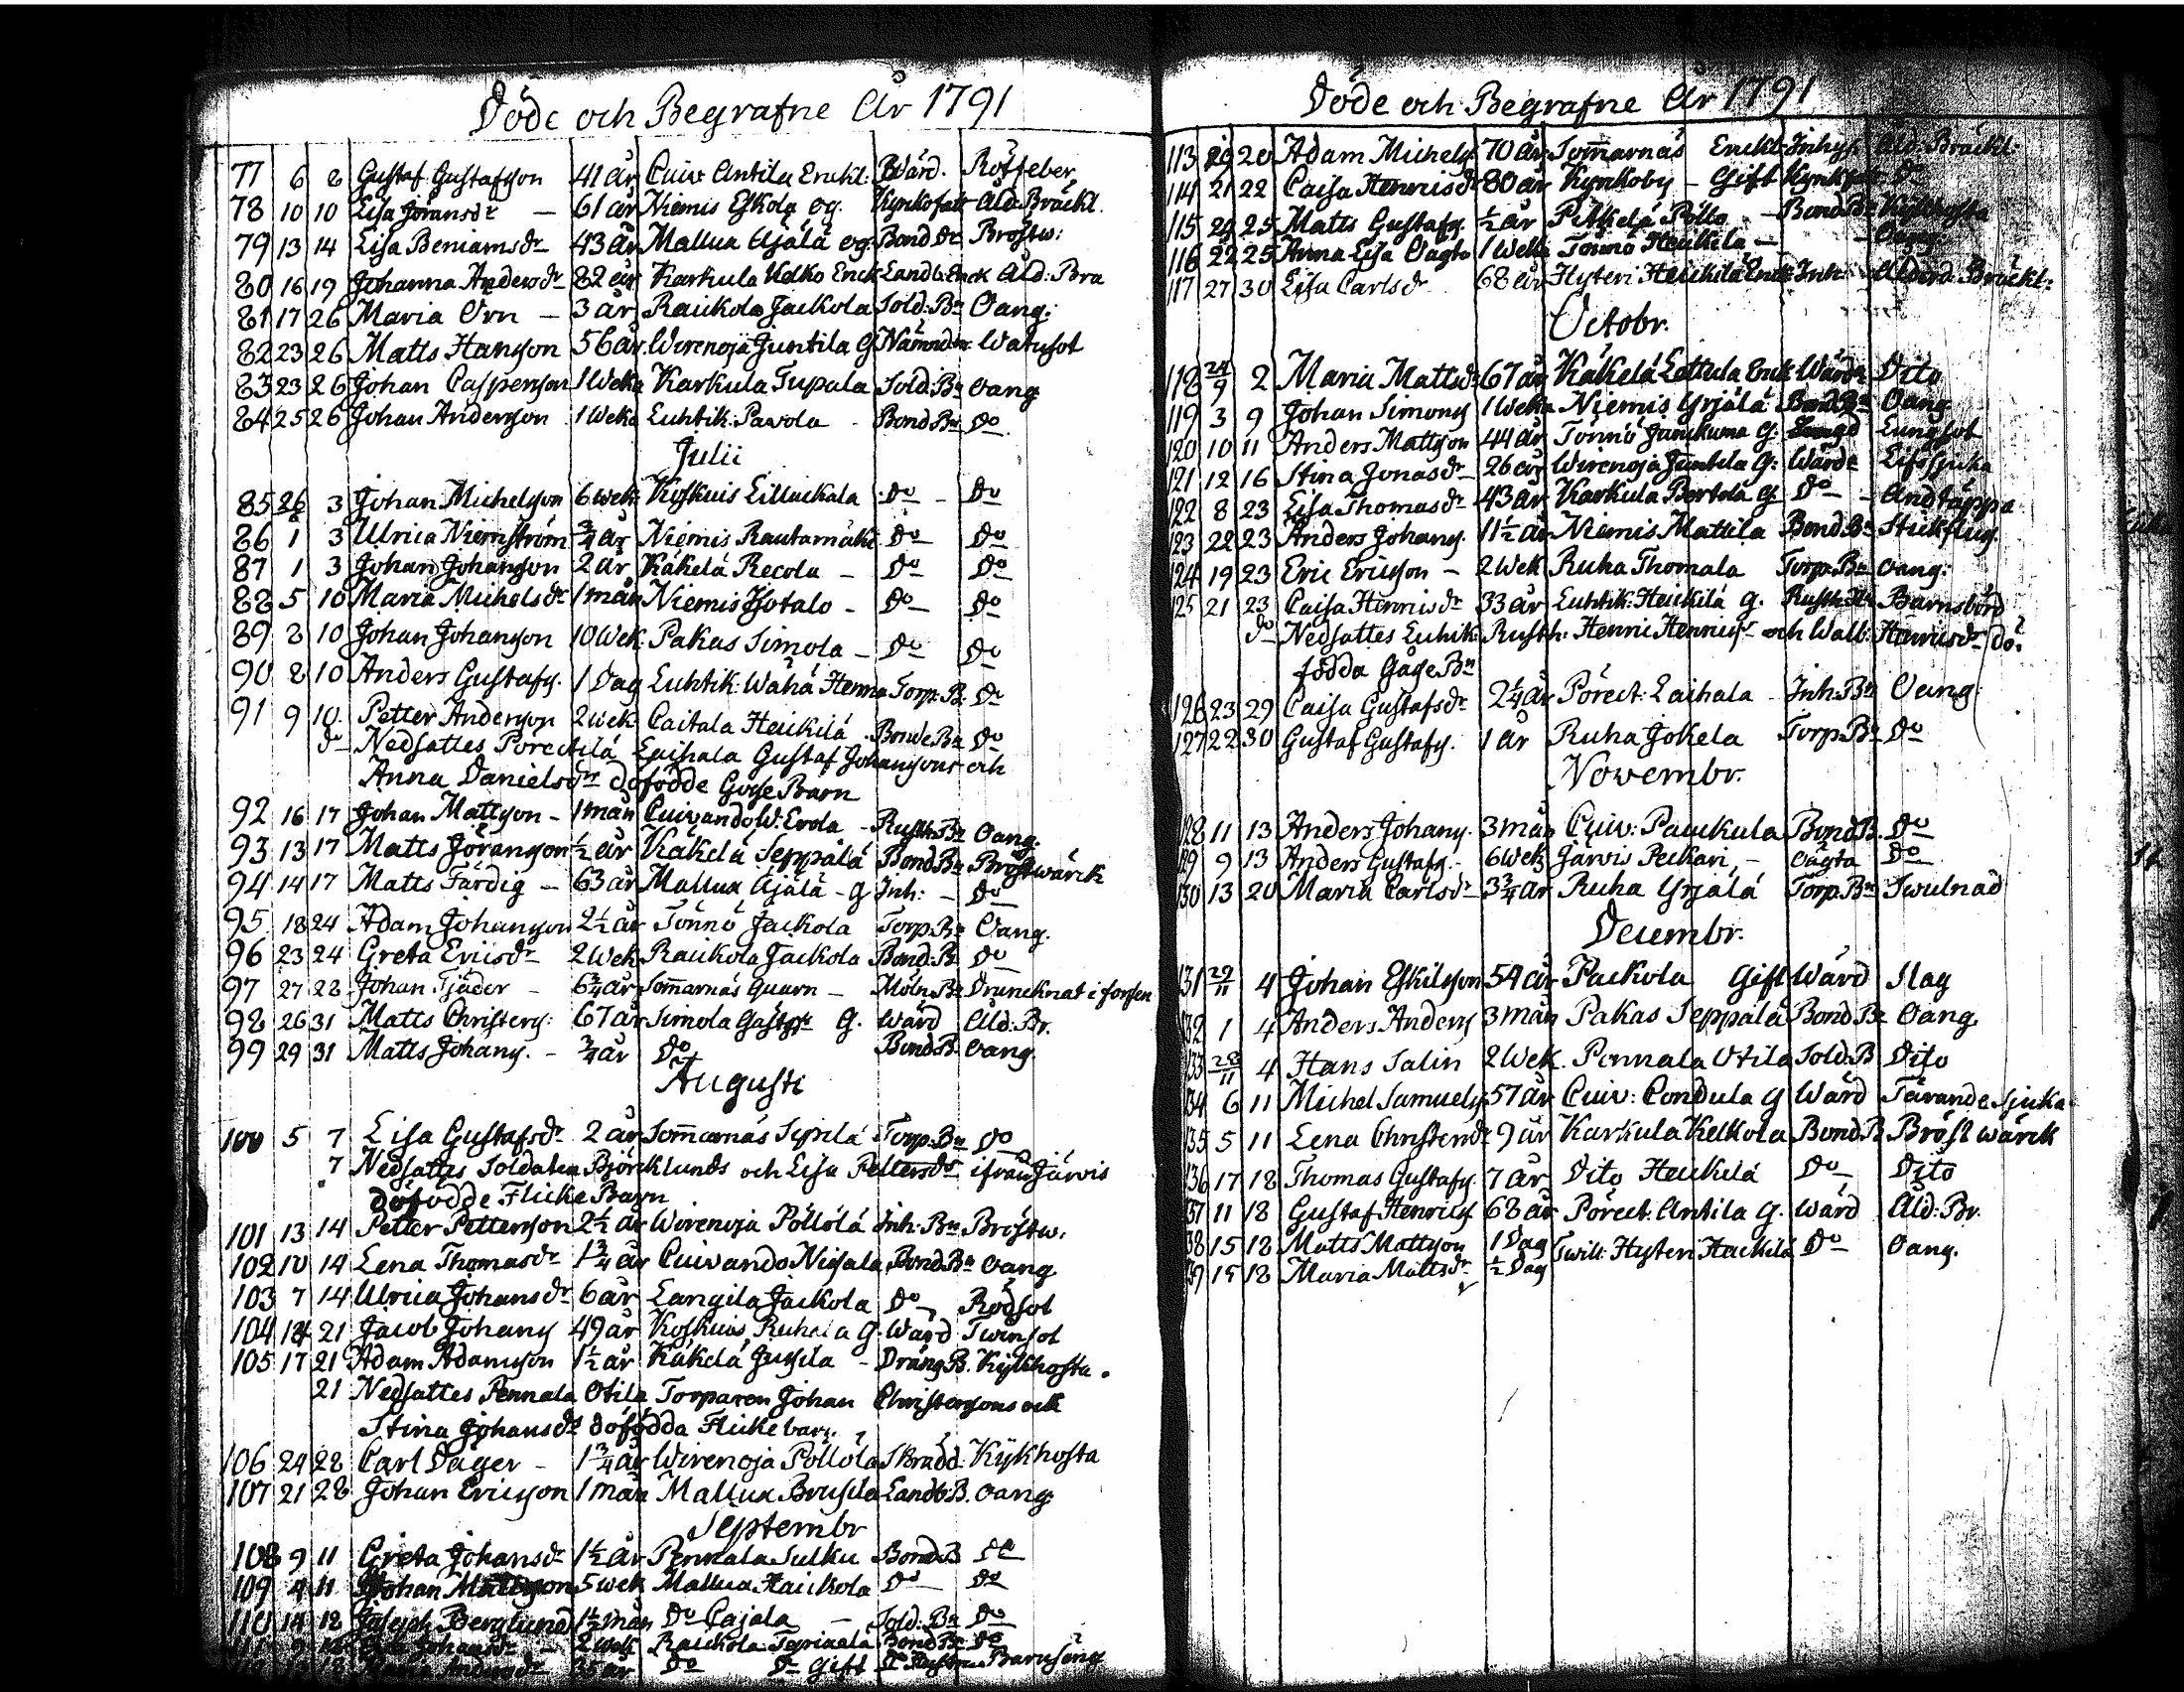 Döde och Begrafne År 1791
77 6 8 Gustaf Gustafsson 41 år Cuiv Antila Enckl: Wärd. Rötfeber
78 10 10 Lisa Jöransdr — 61 år Niemis Eskola eg. Kynkofatt Åld: Bräckl.
79 13 14 Lisa Beniamsdr 43 år Mallua Äjälä eg: Bond Dr Bröstw:
80 16 19 Johanna Andersdr 82 år Karkula Kolko Enck Landb: Enck Åld: Brä
81 17 26 Maria Örn — 3 år Raukola Jackola Sold: Bn Oang:
82 23 26 Matts Hansson 56 år Wirenoja Juntila G Nämndm: Watusot
83 23 26 Johan Casperson 1 Weka Karkula Tupala Sold: Bn Oang
84 25 26 Johan Andersson 1 Weka Luhtik: Pavola Bond Bn Do
Julii
85 26 3 Johan Michelsson 6 wek Koskuis Lilluckala Do — Do
86 1 3 Ulrica Niemström 3/4 år Niemis Rautamäki Do — Do
87 1 3 Johan Johansson 2 år Käkelä Recola — Do Do
88 5 10 Maria Michelsdr 1 mån Niemis Isotalo — Do — Do
89 8 10 Johan Johansson 10 Wek Pakas Simola — Do Do
90 8 10 Anders Gustafs. 1 Dag Luhtik: Wähä Henna Torp: B. Do
91 9 10 Petter Andersson 2 wek Caitala Heickilä Bonde Bn Do
do Nedsattes Porectilä Laihala Gustaf Johanssons och
Anna Danielsdrs döfödde Gosse Barn
92 16 17 Johan Mattsson — 1 mån Cuivando W. Erola — Rusth: Bn Oang.
93 13 17 Matts Jöransson 1/2 år Käkelä Seppälä Bond Bn Bröstwärck
94 14 17 Matts Färdig — 63 år Mallua Äjälä — G Inh: — Do
95 18 24 Adam Johansson 2 1/2 år Tönnö Jackola Torp: Bn Oang.
96 23 24 Greta Ericsdr 2 Wek Raukola Jackola Bond: B Do
97 27 28 Johan Tjäder — 6 3/4 år Som̄arnäs Quarn — Möln: Bn Druncknat i forsen
98 26 31 Matts Christers: 67 år Simola G. Wärd Åld: Br.
99 29 31 Matts Johans. — 3/4 år Do Bond B. Oang.
Augusti
100 5 7 Lisa Gustafsdr 2 år Som̄arnäs Torp: Bn Do
7 Nedsattes Soldaten Björcklunds och Lisa Pettersdrs ifrån Järvis
döfödde Flicke Barn
101 13 14 Petter Pettersson 2 1/2 år Wirenoja Pöllölä Inh: Bn Bröstw:
102 10 14 Lena Thomasdr 1 3/4 år Cuivando Nigala Bond Bn Oang
103 7 14 Ulrica Johansdr 6 år Langila Jackola Do — Rödsot
104 18 21 Jacob Johans 49 år Koskuis Ruhala G. Wärd Twinsot
105 17 21 Adam Adamsson 1 1/2 år Käkelä Jussila — Dräng B. Kijkhosta.
21 Nedsattes Pennala Otila Torparen Johan Christerssons och
Stina Johansdrs döfödda Flickebarn.
106 24 28 Carl Dager — 1 3/4 år Wirenoja Pöllölä Skrädd: Kijkhosta
107 21 28 Johan Ericsson 1 mån Mallua Brusila Landb: B. Oang.
Septembr
108 9 11 Greta Johansdr 1 1/2 år Pennala Sulku Bond B Do
109 4 11 Johan Mattsson 5 wek Mallua Haickola Do — Do
110 14 18 Joseph Berglund 1 1/2 mån Do Cajala — Sold: Bn Do
2 wek Raukola Bond Bn Do
35 år Do Do Gift Barnsäng
Döde och Begrafne År 1791
113 19 20 Adam Michels 70 år Som̄arnäs Enckl: Inhys. Åld: Bräckl:
114 21 22 Caisa Henricsdr 80 år Kynkoby — Gift Do
115 24 25 Matts Gustafs. 1/2 år Pitkelä Pöllö — Bond Bn Kijkhosta
116 22 25 Anna Lisa Oägta 1 Weka Tönnö Heickilä — Oang:
117 27 30 Lisa Carlsdr 68 år Hyteri Heickilä Enck Inh: Ålderd: Bräckl:
Octobr.
118 24/9 2 Maria Mattsdr 67 år Käkelä Lattula Enck Wärda Dito
119 3 9 Johan Simons 1 Weka Niemis Yrjälä Bond Bn Oang
120 10 11 Anders Mattsson 44 år Tönnö G: Lungsot
121 12 16 Stina Jonasdr 26 år Wirenoja Juntila G: Wärde Lifssjuka
122 8 23 Lisa Thomasdr 43 år Karkula Bertolä G Do — Andtäppa
123 22 23 Anders Johans. 11 1/2 år Niemis Mattila Bond: Bn Stickflug.
124 19 23 Eric Ericsson — 2 Wek Ruha Thomala Torp: Bn Oang:
125 21 23 Caisa Henricsdr 33 år Luhtik: Heickilä G. Barnsbörd
do Nedsattes Luhtik: Rusth: Henric Henrics och Walb: Henricsdr dö:
födda Gosse Bn
126 23 29 Caisa Gustafsdr 2 1/4 år Pörect: Laihala Inh: Bn Oang:
127 22 30 Gustaf Gustafs. 1 år Ruha Jokela Torp: Bn Do
Novembr.
128 11 13 Anders Johans. 3 mån Cuiv: Pauckula Bond B. Do
129 9 13 Anders Gustafs. — 6 wek Järvis Peckari — Oägta Do
130 13 20 Maria Carlsdr 3 3/4 år Ruha Yrjälä Torp: Bn Swulnad
Decembr.
131 29/11 4 Johan Eskilsson 54 år Packola Gift Wärd Slag
132 1 4 Anders Anders 3 mån Pakas Seppälä Bond Bn Oang.
133 28/11 4 Hans Salin 2 Wek. Pennala Otila Sold: B Dito
134 6 11 Michel Samuels 57 år Cuiv: Condula G Wärd Tärande Sjuka
135 5 11 Lena Christersdr 9 år Karkula Kelkola Bond: B Bröstwärck
136 17 18 Thomas Gustafs. 7 år Dito Heickilä Do — Dito
137 11 18 Gustaf Henrics 68 år Pörect: Antila G. Wärd Åld: Br.
138 15 18 Matts Mattsson 1 Dag Twill: Hyteri Heickilä Do — Oang.
139 15 18 Maria Mattsdr 1/2 Dag